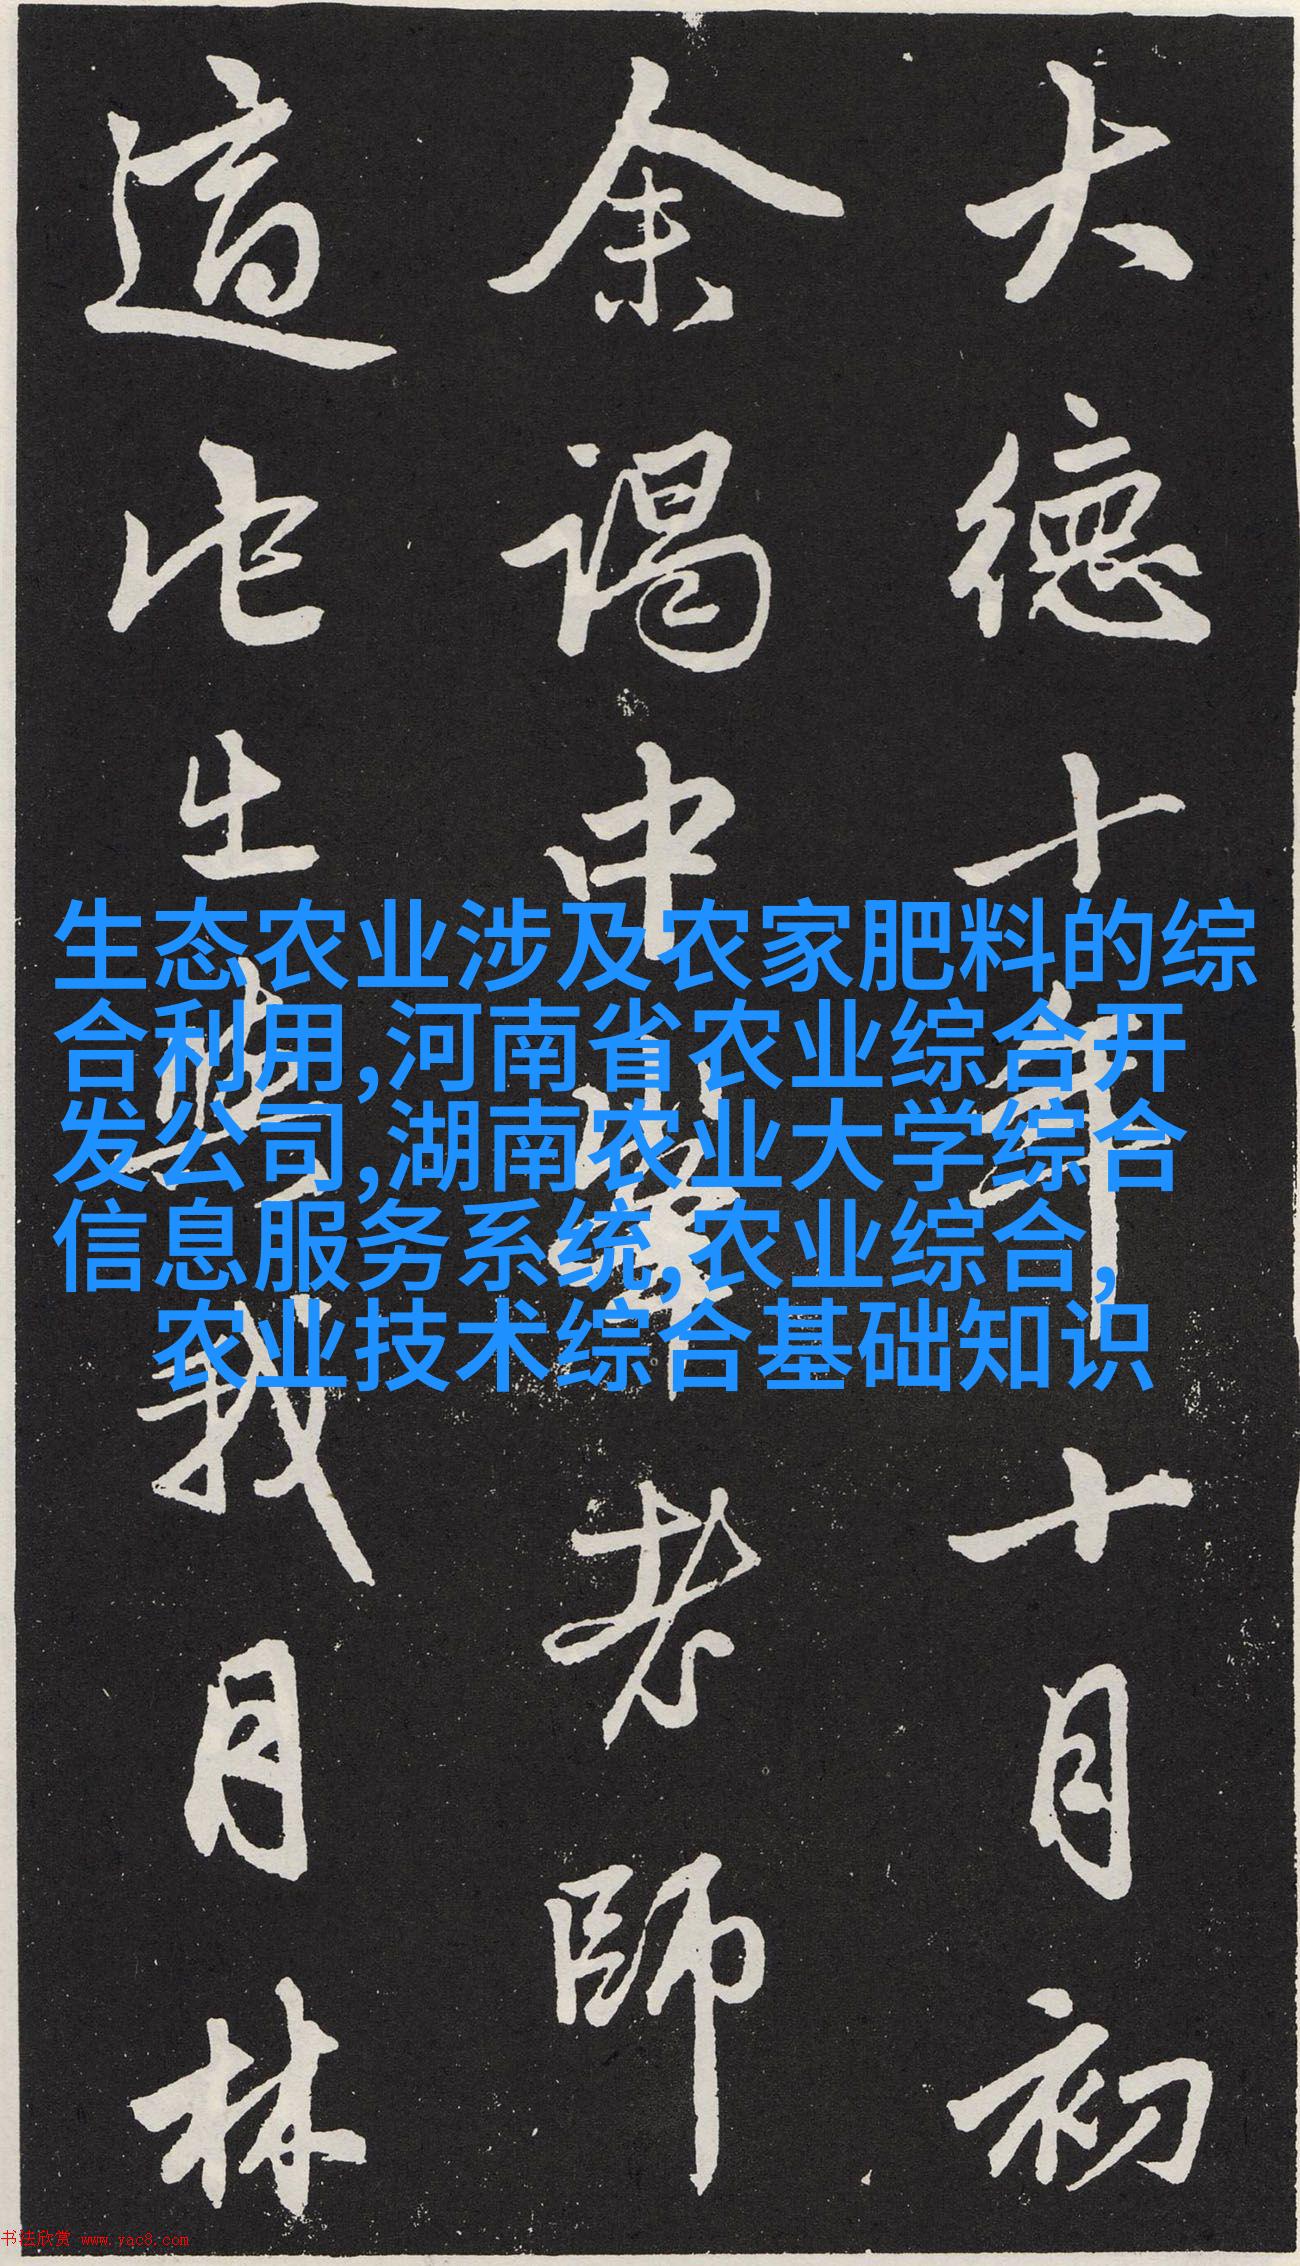 生态农业涉及农家肥料的综
合利用,河南省农业综合开
发公司,湖南农业大学综合
信息服务系统,农业综合,
农业技术综合基础知识
大德十年十月初
余謁中峯老師
適此出我月林
书法欣赏 www.yac8.com